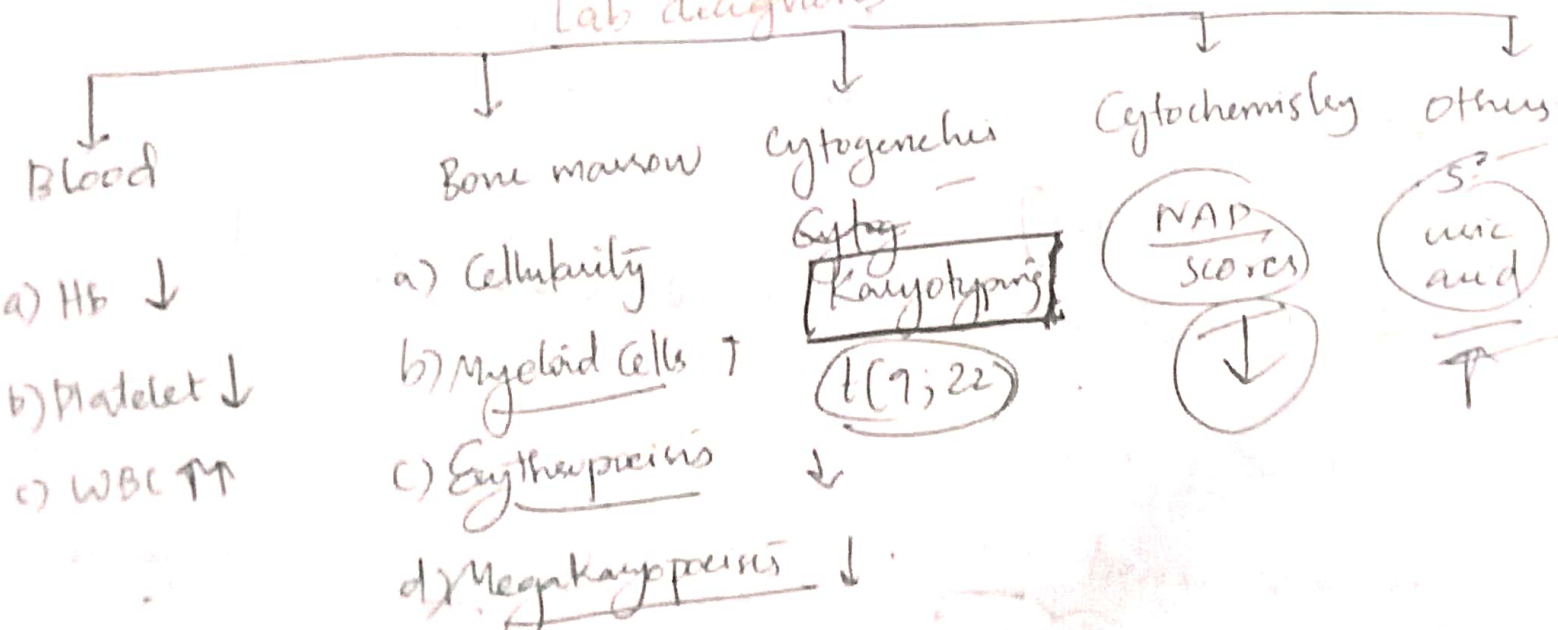 Lab diagnosis
Blood
a) Hb ↓
b) Platelet ↓
c) WBC ↑↑
Bone marrow
a) Cellularity
b) Myeloid Cells ↑
c) Erythropoeisis ↓
d) Megakaryopoeisis ↓
Cytogenetics
Cytog
Karyotyping
t(9;22)
Cytochemistry
NAP
scores
↓
Others
S.
uric
acid
↑